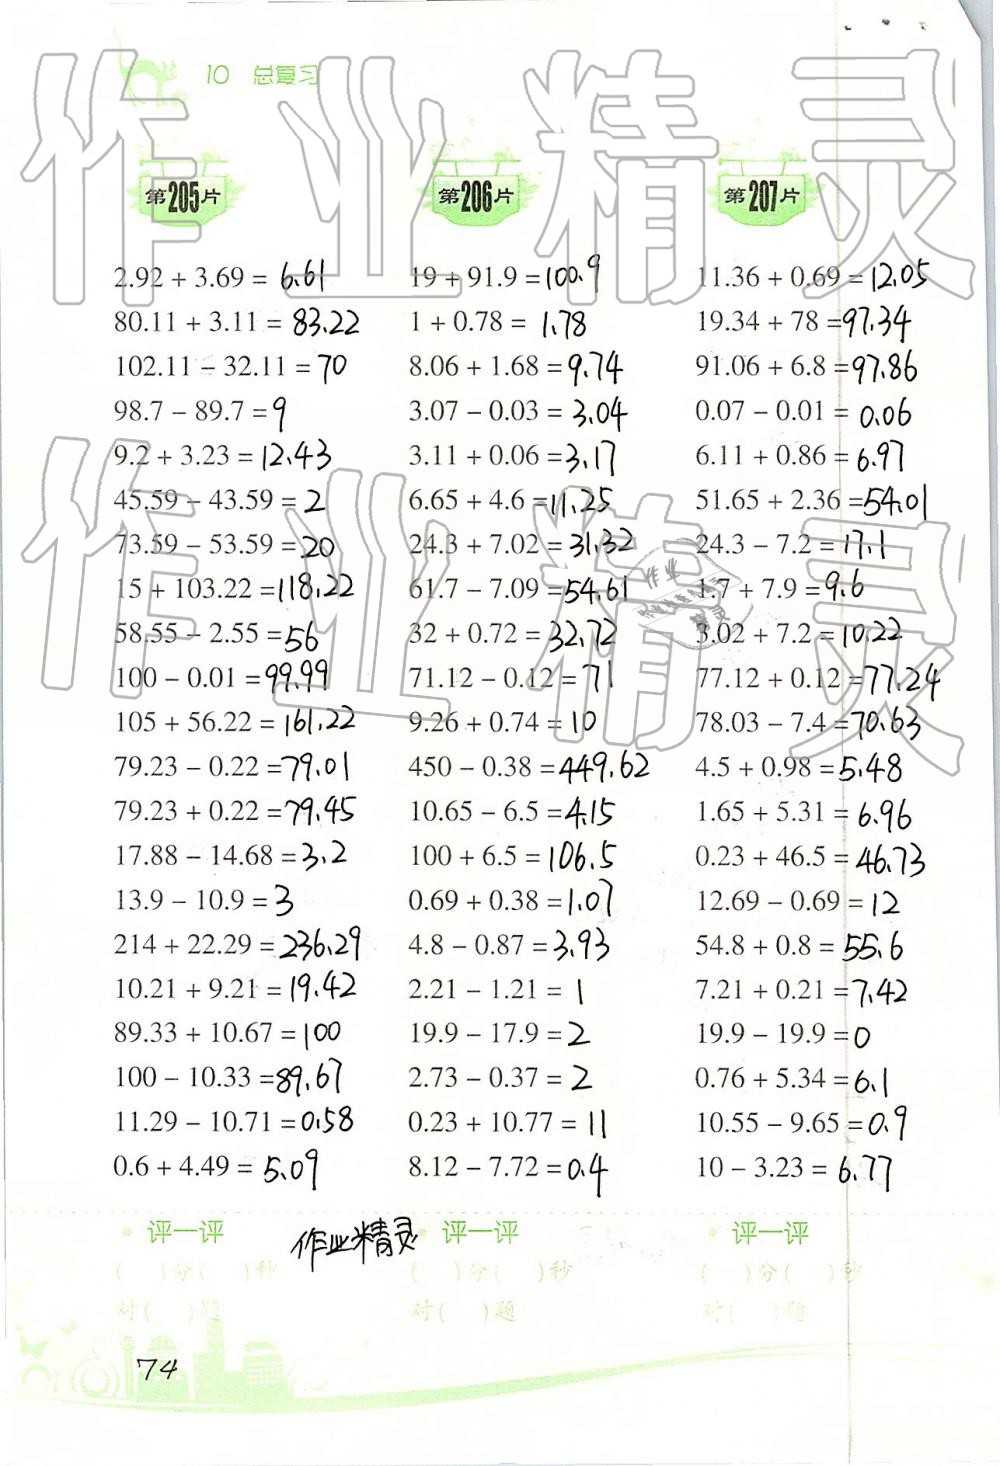 10 总复习
第205片 第206片 第207片
2.92 + 3.69 = 6.61 19 + 91.9 = 100.9 11.36 + 0.69 = 12.05
80.11 + 3.11 = 83.22 1 + 0.78 = 1.78 19.34 + 78 = 97.34
102.11 - 32.11 = 70 8.06 + 1.68 = 9.74 91.06 + 6.8 = 97.86
98.7 - 89.7 = 9 3.07 - 0.03 = 3.04 0.07 - 0.01 = 0.06
9.2 + 3.23 = 12.43 3.11 + 0.06 = 3.17 6.11 + 0.86 = 6.97
45.59 - 43.59 = 2 6.65 + 4.6 = 11.25 51.65 + 2.36 = 54.01
73.59 - 53.59 = 20 24.3 + 7.02 = 31.32 24.3 - 7.2 = 17.1
15 + 103.22 = 118.22 61.7 - 7.09 = 54.61 1.7 + 7.9 = 9.6
58.55 - 2.55 = 56 32 + 0.72 = 32.72 3.02 + 7.2 = 10.22
100 - 0.01 = 99.99 71.12 - 0.12 = 71 77.12 + 0.12 = 77.24
105 + 56.22 = 161.22 9.26 + 0.74 = 10 78.03 - 7.4 = 70.63
79.23 - 0.22 = 79.01 450 - 0.38 = 449.62 4.5 + 0.98 = 5.48
79.23 + 0.22 = 79.45 10.65 - 6.5 = 4.15 1.65 + 5.31 = 6.96
17.88 - 14.68 = 3.2 100 + 6.5 = 106.5 0.23 + 46.5 = 46.73
13.9 - 10.9 = 3 0.69 + 0.38 = 1.07 12.69 - 0.69 = 12
214 + 22.29 = 236.29 4.8 - 0.87 = 3.93 54.8 + 0.8 = 55.6
10.21 + 9.21 = 19.42 2.21 - 1.21 = 1 7.21 + 0.21 = 7.42
89.33 + 10.67 = 100 19.9 - 17.9 = 2 19.9 - 19.9 = 0
100 - 10.33 = 89.67 2.73 - 0.37 = 2 0.76 + 5.34 = 6.1
11.29 - 10.71 = 0.58 0.23 + 10.77 = 11 10.55 - 9.65 = 0.9
0.6 + 4.49 = 5.09 8.12 - 7.72 = 0.4 10 - 3.23 = 6.77
评一评 作业精灵 评一评 评一评
( )分( )秒 ( )分( )秒 ( )分( )秒
对( )题 对( )题 对( )题
74
作业精灵
作业精灵